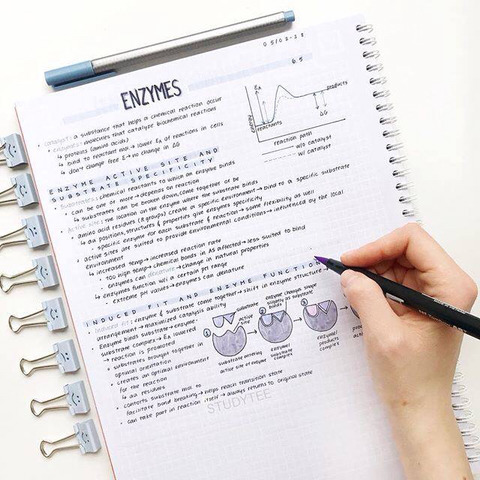 05/03-22
6.5
ENZYMES
catalyst: a substance that helps a chemical reaction occur
enzymes: molecules that catalyze biochemical reactions
↳ proteins (amino acids)
↳ bind to reactant mol → lower EA of reactions in cells
↳ don't change free E → no change in ΔG
EA
products
energy
reactants
ΔG
reaction path
w/o catalyst
w/ catalyst
ENZYME ACTIVE SITE AND
SUBSTRATE SPECIFICITY
substrates: chemical reactants to which an enzyme binds
↳ can be one or more → depends on reaction
↳ substrates can be broken down, come together to be
active site: the location on the enzyme where the substrate binds
amino acid residues (R groups) create a specific environment → bind to a specific substrate
↳ aa positions, structures & properties give enzymes specificity
↳ specific enzyme for each substrate & reaction → some flexibility as well
active sites are suited to provide environmental conditions → influenced by the local
environment
↳ increased temp → increased reaction rate
↳ too high temp → chemical bonds in AS affected → less suited to bind
↳ enzymes can denature → change in natural properties
enzymes function w/i a certain pH range
↳ extreme pH values → enzymes can denature
INDUCED FIT AND ENZYME FUNCTION
induced fit: enzyme & substrate come together → shift in enzyme structure
arrangement → maximized catalysis ability
Enzyme binds substrate → enzyme-
substrate complex → EA lowered
↳ reaction is promoted
↳ substrates brought together in
optimal orientation
↳ creates an optimal environment
for the reaction
↳ aa residues
↳ contorts substrate mol to
facilitate bond breaking → helps reach transition state
↳ can take part in reaction itself → always returns to original state
substrate
active site
enzyme change shape
slightly as substrate
binds
substrate entering
active site of enzyme
enzyme/
substrate
complex
enzyme/
products
complex
STUDYTEE